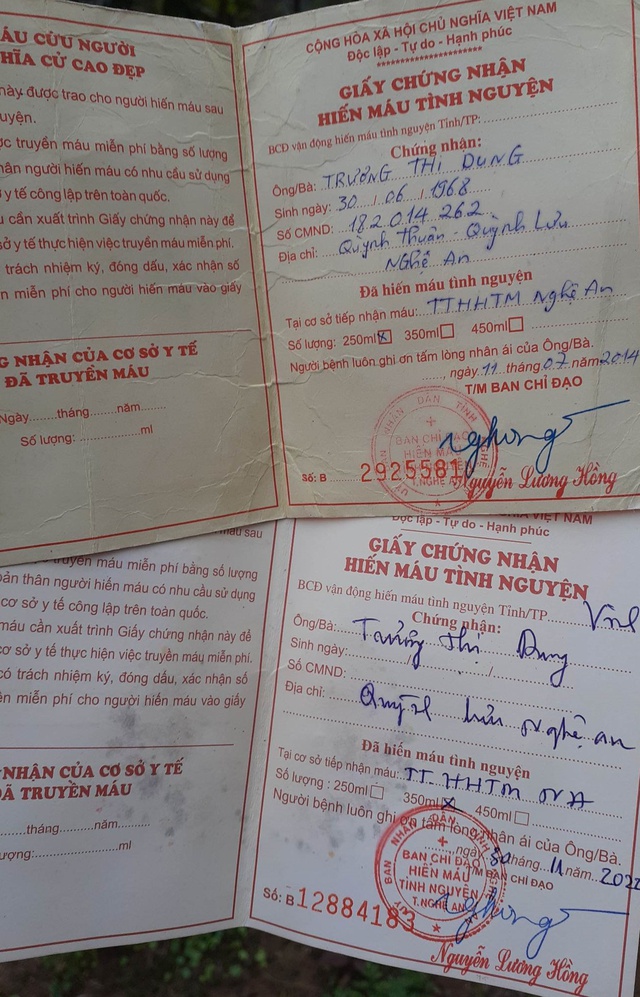 ÁU CỨU NGƯỜI
HĨA CỬ CAO ĐẸP
này được trao cho người hiến máu sau
uyện.
ợc truyền máu miễn phí bằng số lượng
hân người hiến máu có nhu cầu sử dụng
y tế công lập trên toàn quốc.
u cần xuất trình Giấy chứng nhận này để
sở y tế thực hiện việc truyền máu miễn phí.
trách nhiệm ký, đóng dấu, xác nhận số
n miễn phí cho người hiến máu vào giấy
G NHẬN CỦA CƠ SỞ Y TẾ
ĐÃ TRUYỀN MÁU
Ngày......tháng........năm.......
Số lượng: ................ml
CỘNG HÒA XÃ HỘI CHỦ NGHĨA VIỆT NAM
Độc lập - Tự do - Hạnh phúc
********************
GIẤY CHỨNG NHẬN
HIẾN MÁU TÌNH NGUYỆN
BCĐ vận động hiến máu tình nguyện Tỉnh/TP:
Chứng nhận:
Ông/Bà: TRƯƠNG THỊ DUNG
Sinh ngày: 30 / 06 / 1968
Số CMND: 182 014 262
Địa chỉ: Quỳnh Thuận - Quỳnh Lưu
Nghệ An
Đã hiến máu tình nguyện
Tại cơ sở tiếp nhận máu: TTHHTM Nghệ An
Số lượng: 250ml☒ 350ml☐ 450ml☐
Người bệnh luôn ghi ơn tấm lòng nhân ái của Ông/Bà.
......, ngày 11 tháng 07 năm 2014
T/M BAN CHỈ ĐẠO
ỦY BAN NHÂN DÂN TỈNH NGHỆ AN
BAN CHỈ ĐẠO
HIẾN MÁU
TÌNH NGUYỆN
T.NGHỆ AN
Số: B 2925581
Nguyễn Lương Hồng
máu sau
truyền máu miễn phí bằng số lượng
bản thân người hiến máu có nhu cầu sử dụng
cơ sở y tế công lập trên toàn quốc.
máu cần xuất trình Giấy chứng nhận này để
cơ sở y tế thực hiện việc truyền máu miễn phí.
có trách nhiệm ký, đóng dấu, xác nhận số
ền miễn phí cho người hiến máu vào giấy
NHẬN CỦA CƠ SỞ Y TẾ
ĐÃ TRUYỀN MÁU
......tháng........năm.......
ượng: ................ml
VIỆT NAM
Độc lập - Tự do - Hạnh phúc
GIẤY CHỨNG NHẬN
HIẾN MÁU TÌNH NGUYỆN
BCĐ vận động hiến máu tình nguyện Tỉnh/TP
Chứng nhận:
Ông/Bà: Trương Thị Dung
Sinh ngày: / /
Số CMND:
Địa chỉ: Quỳnh Lưu Nghệ an
Đã hiến máu tình nguyện
Tại cơ sở tiếp nhận máu: TT HHTM NA
Số lượng : 250ml☐ 350ml☒ 450ml☐
Người bệnh luôn ghi ơn tấm lòng nhân ái của Ông/Bà.
ngày 30 tháng 11 năm 2022
T/M BAN CHỈ ĐẠO
ỦY BAN NHÂN DÂN TỈNH NGHỆ AN
BAN CHỈ ĐẠO
HIẾN MÁU
TÌNH NGUYỆN
T.NGHỆ AN
Số: B 12884183
Nguyễn Lương Hồng